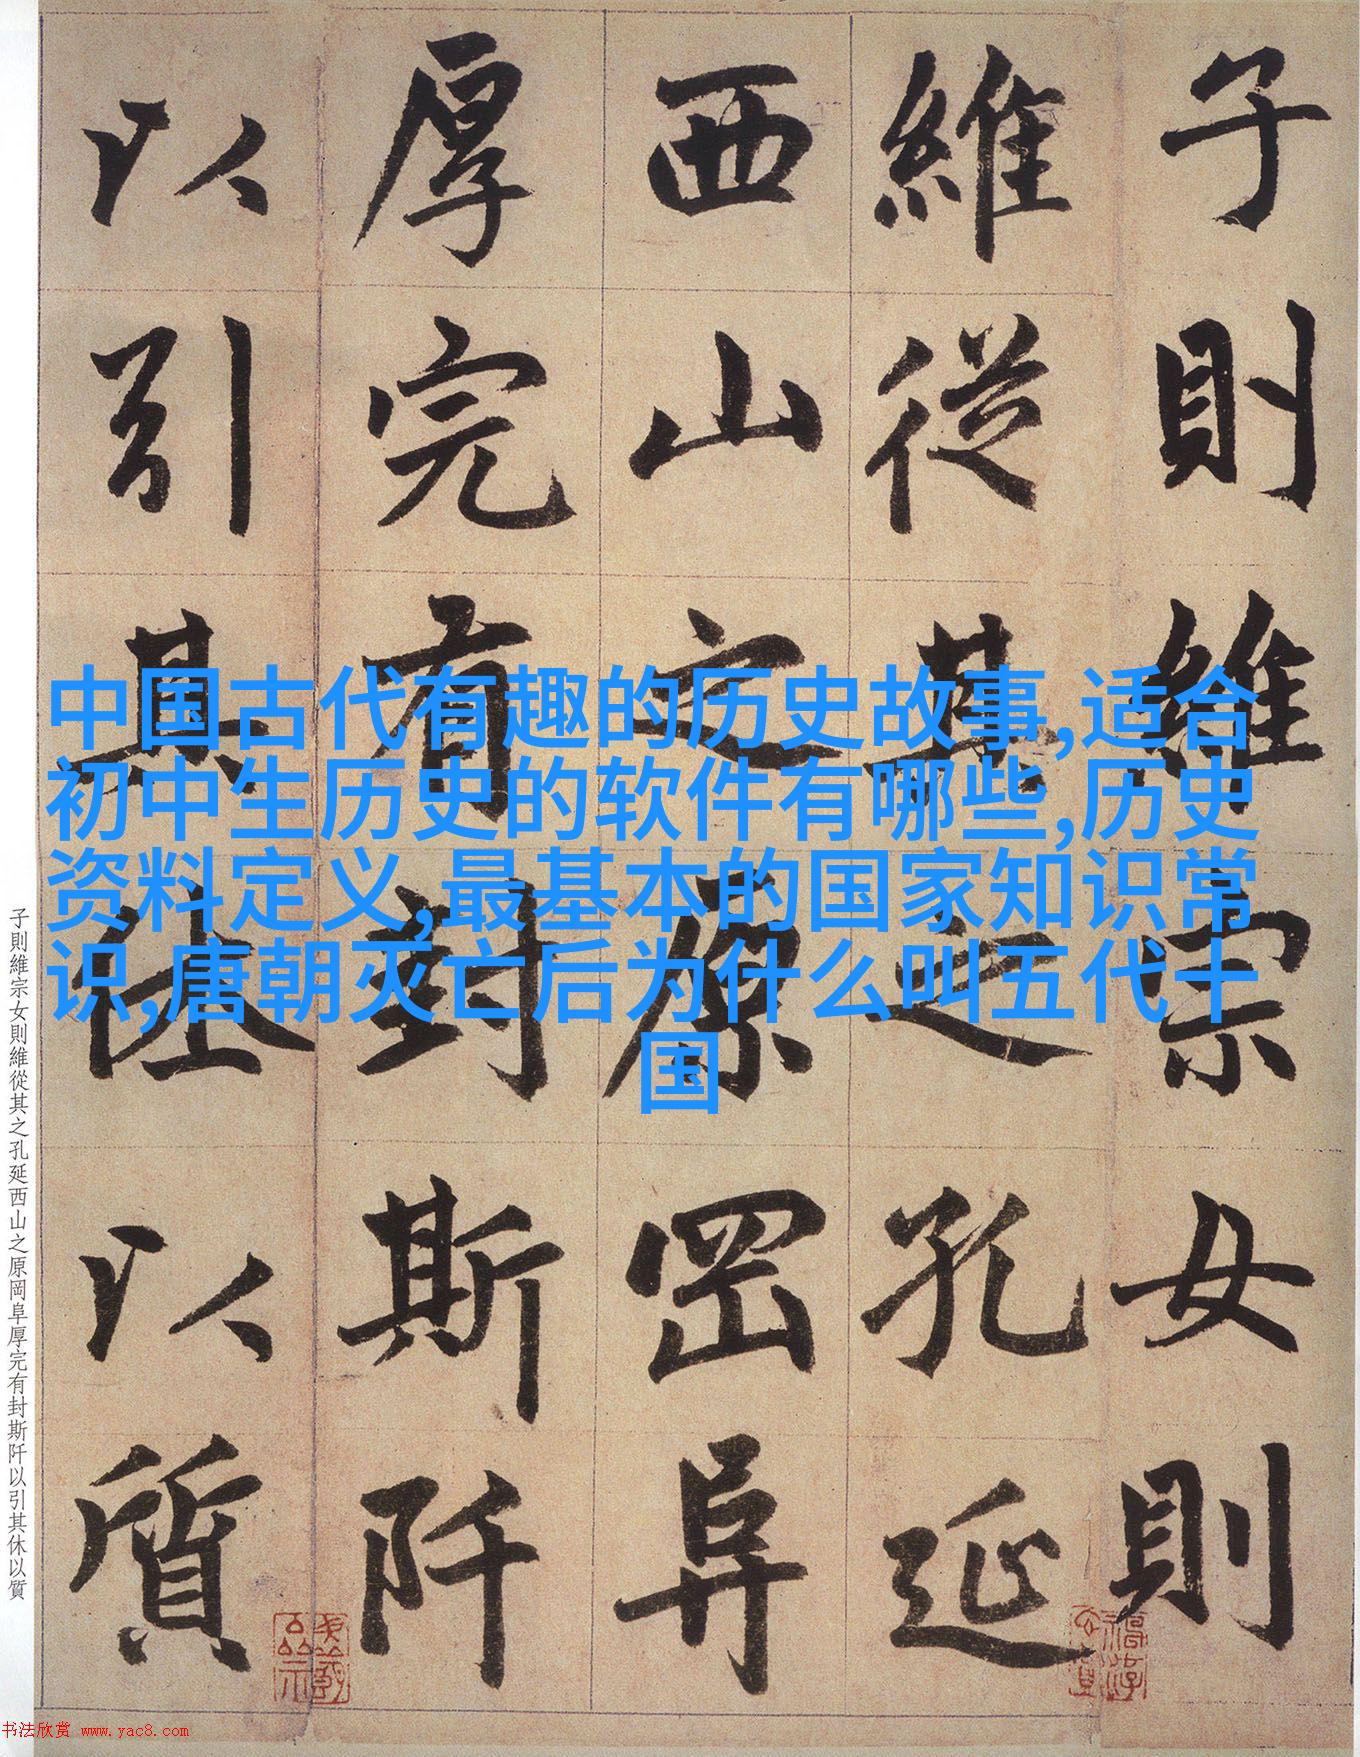 子則維宗女則
維從其之孔延
西山之原岡阜
厚完有封斯阡
以引其休以質
中国古代有趣的历史故事,适合
初中生历史的软件有哪些,历史
资料定义,最基本的国家知识常
识,唐朝灭亡后为什么叫五代十
国
子則維宗女則維從其之孔延西山之原岡阜厚完有封斯阡以引其休以質
书法欣赏 www.yac8.com